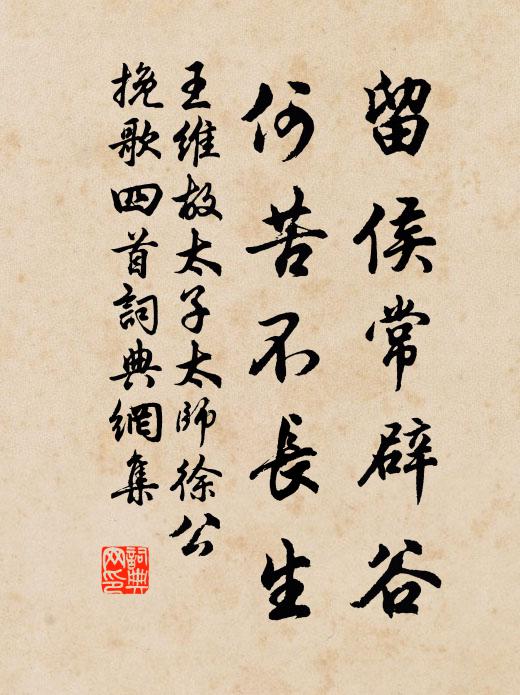 留侯常辟谷
何苦不長生
王維故太子太師徐公
挽歌四首詞典網集
詞典
网印